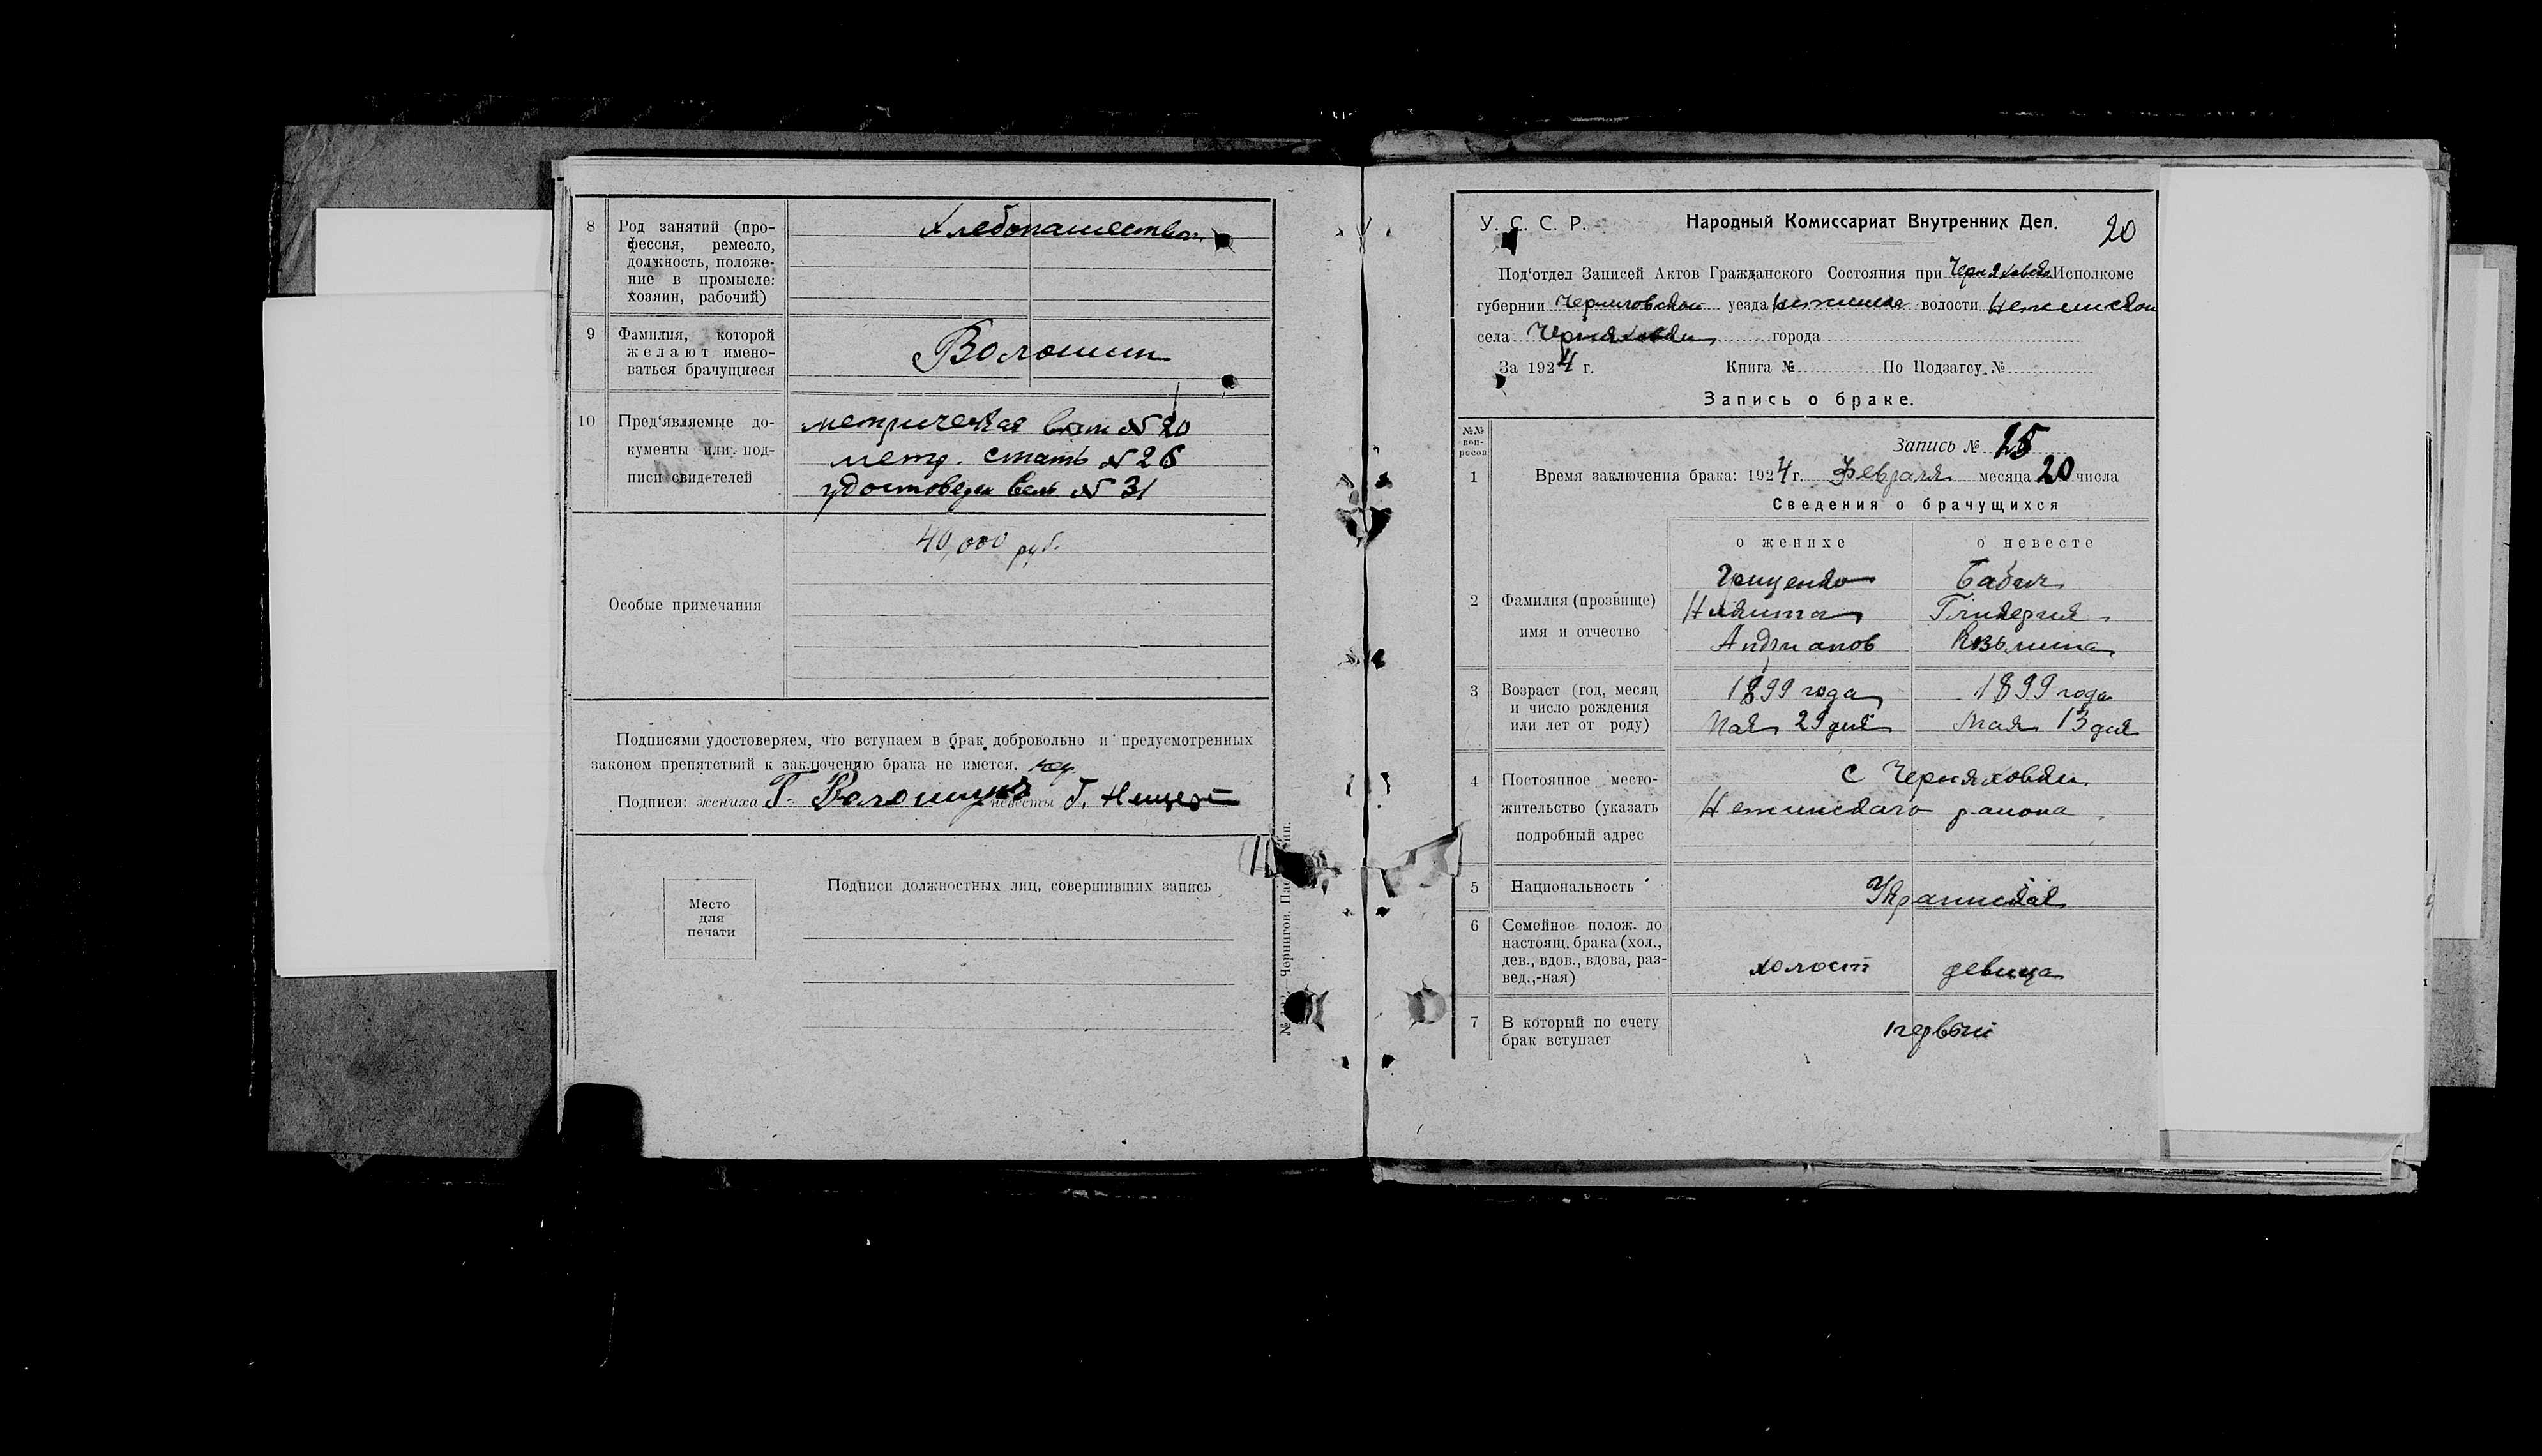 8 Род занятий (про-
фессия, ремесло,
должность, положе-
ние в промысле:
хозяин, рабочий)
Хлебопашеством
9 Фамилия, которой
желают имено-
ваться брачущиеся
Волошин
10 Пред'являемые до-
кументы или под-
писи свидетелей
метрическая № 20
метр. стать № 26
№ 31
Особые примечания
40,000 руб.
Подписями удостоверяем, что вступаем в брак добровольно и предусмотренных
законом препятствий к заключению брака не имется.
Подписи: жениха Г. Волошин невесты Г.
Место
для
печати
Подписи должностных лиц, совершивших запись
20
У. С. С. Р. Народный Комиссариат Внутренних Дел.
Под'отдел Записей Актов Гражданского Состояния при Черняховск. Исполкоме
губернии Черниговской уезда волости Нежинской
села Черняховки города
За 1924 г. Книга № По Подзагсу №
Запись о браке.
№№ воп-
росов
Запись № 25
1 Время заключения брака: 1924 г. Февраля месяца 20 числа
Сведения о брачущихся
о женихе о невесте
2 Фамилия (прозвище)
имя и отчество
Грищенко Бабич
Никита Гликерия
Андрианов Козьмина
3 Возраст (год, месяц
и число рождения
или лет от роду)
1899 года 1899 года
Мая 29 дня Мая 13 дня
4 Постоянное место-
жительство (указать
подробный адрес
с Черняховки
Нежинскаго района
5 Национальность
Украинская
6 Семейное полож. до
настоящ. брака (хол.,
дев., вдов., вдова, раз-
вед.,-ная)
холост девица
7 В который по счету
брак вступает
первый